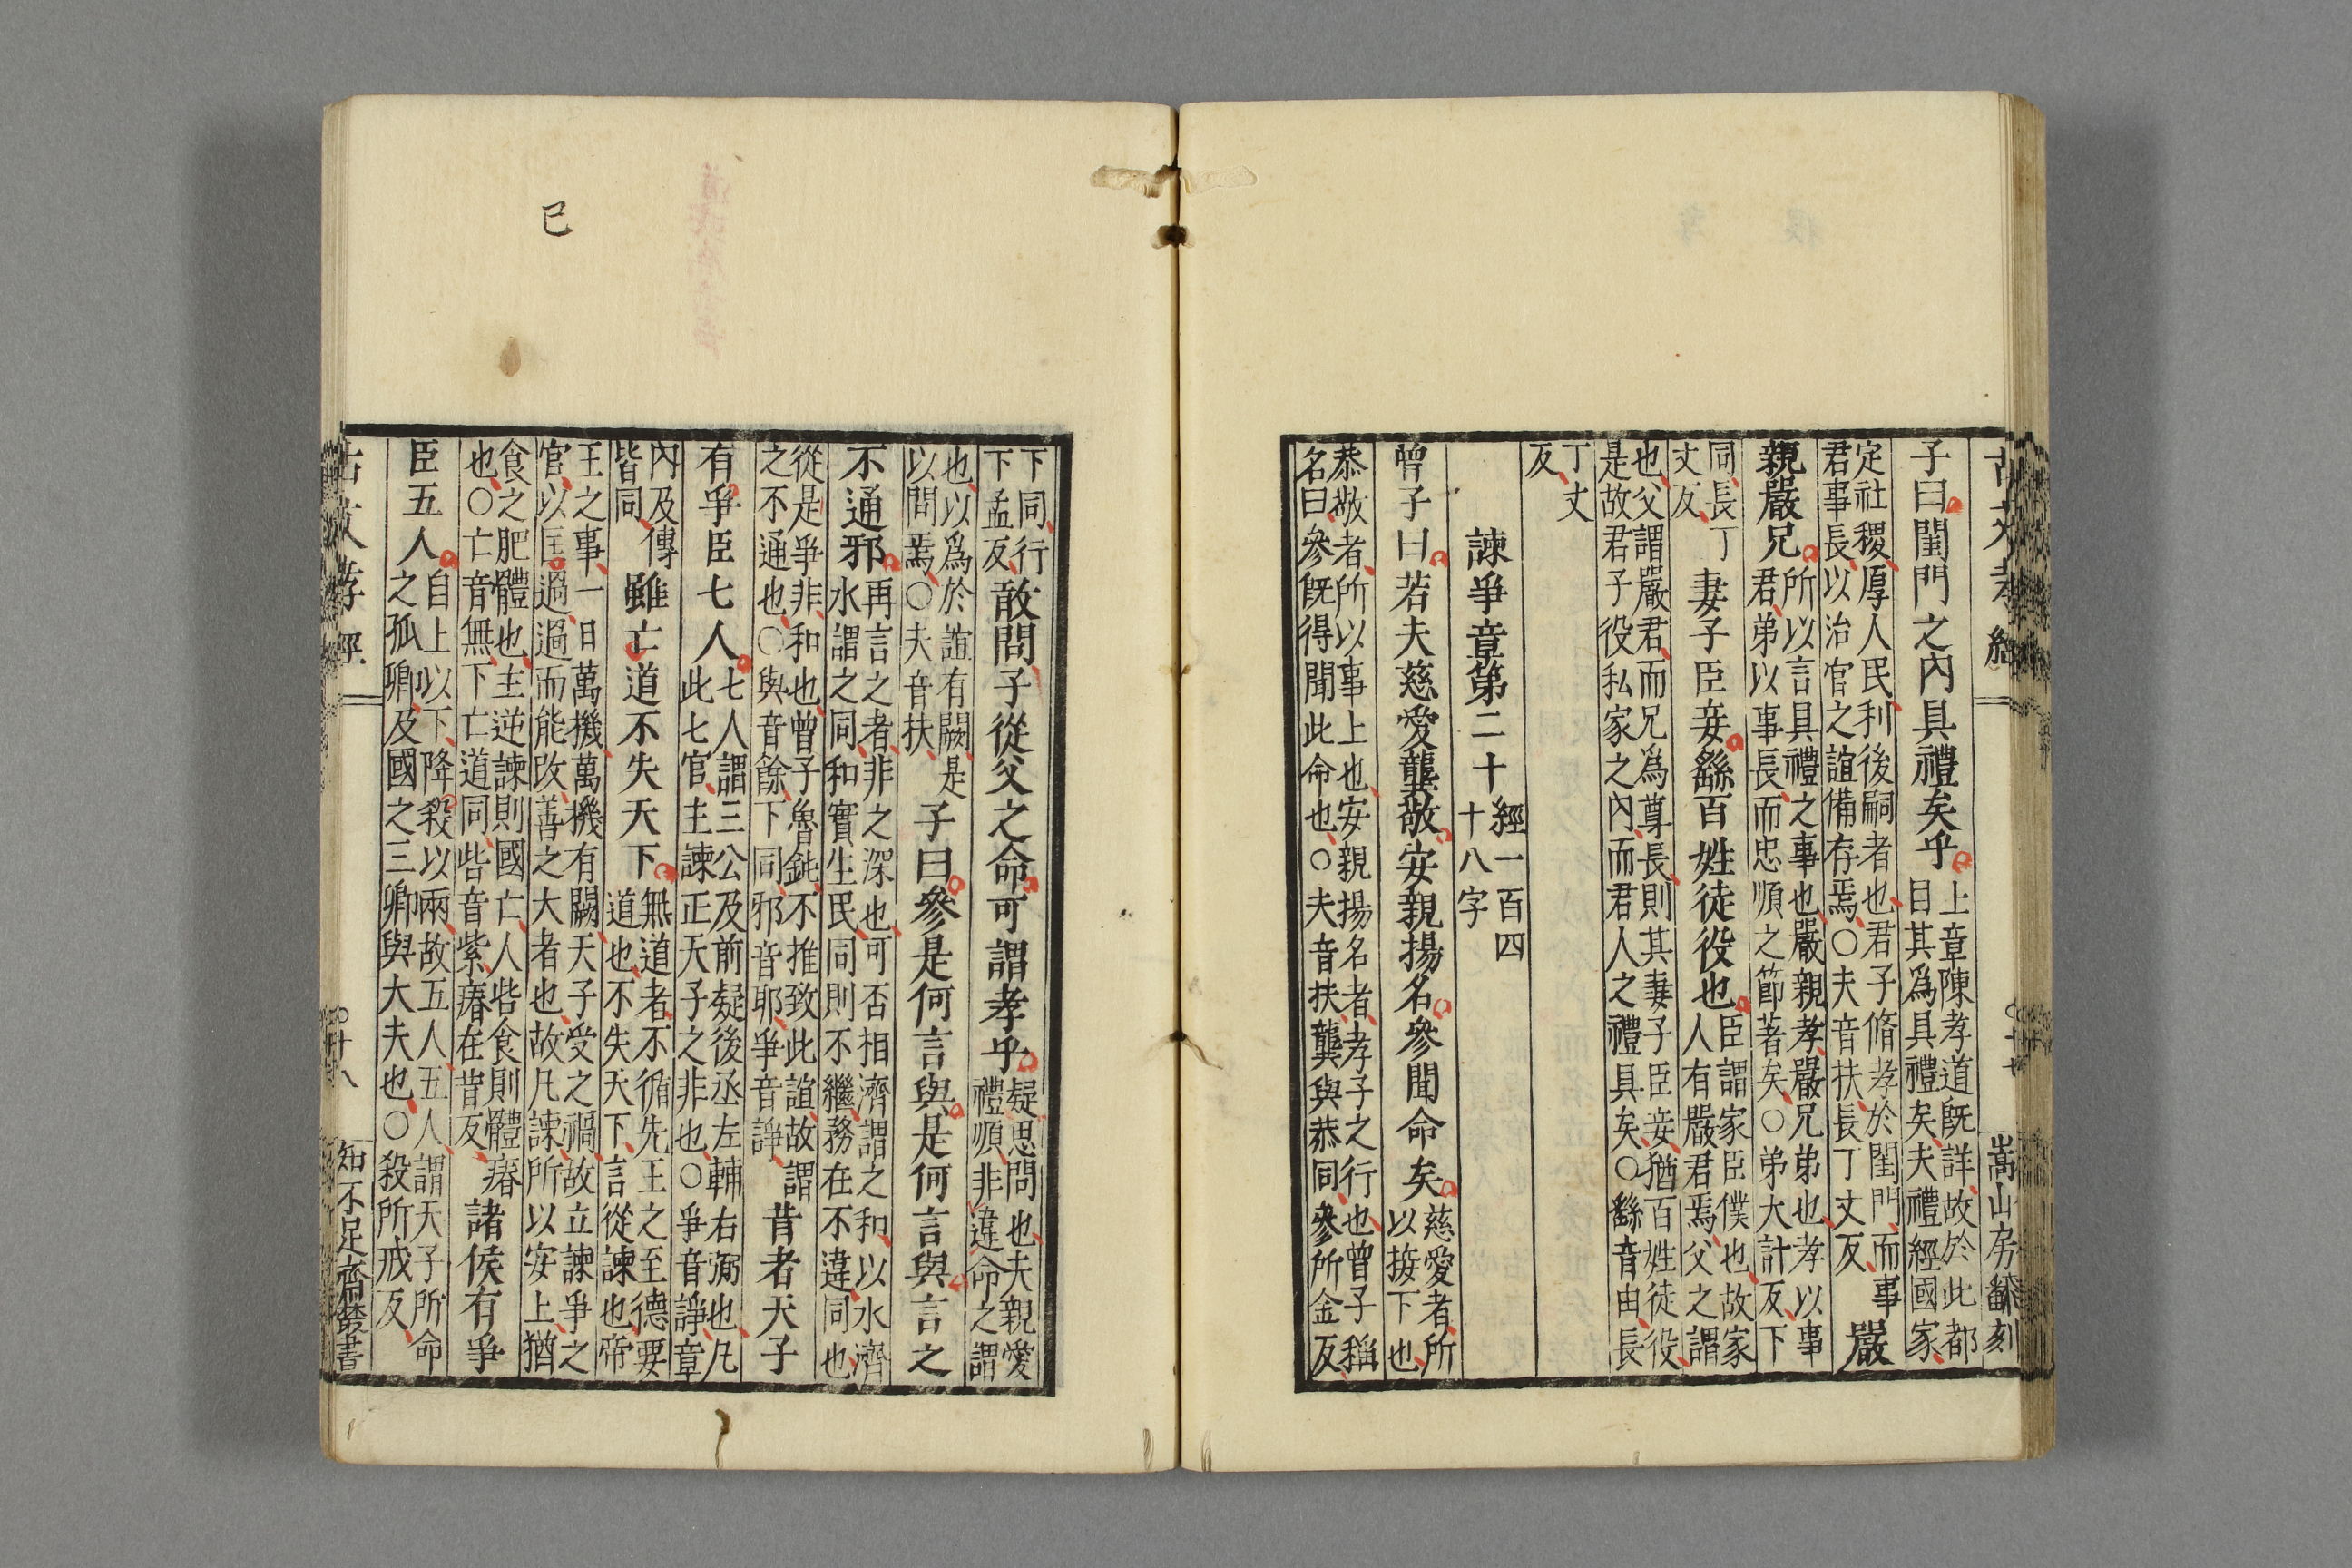 古文孝經 嵩山房翻刻
子曰閨門之內具禮矣乎上章陳孝道既詳故於此都目其爲具禮矣夫禮經國家
定社稷厚人民利後嗣者也君子脩孝於閨門而事君事長以治官之誼備存焉○夫音扶長丁丈反嚴
親嚴兄所以言具禮之事也嚴親孝嚴兄弟也孝以事君弟以事長而忠順之節著矣○弟大計反下
同長丁丈反妻子臣妾繇百姓徒役也臣謂家臣僕也故家人有嚴君焉父之謂
也父謂嚴君而兄爲尊長則其妻子臣妾猶百姓徒役是故君子役私家之內而君人之禮具矣○繇音由長
丁丈反
諫爭章第二十經一百四十八字
曾子曰若夫慈愛龔敬安親揚名參聞命矣慈愛者所以接下也
恭敬者所以事上也安親揚名者孝子之行也曾子稱名曰參既得聞此命也○夫音扶龔與恭同參所金反
下同行下孟反敢問子從父之命可謂孝乎疑思問也夫親愛禮順非違命之謂
也以爲於誼有闕是以問焉○夫音扶子曰參是何言與是何言與言之
不通邪再言之者非之深也可否相濟謂之和以水濟水謂之同和實生民同則不繼務在不違同也
從是爭非和也曾子魯鈍不推致此誼故謂之不通也○與音餘下同邪音耶爭音諍昔者天子
有爭臣七人七人謂三公及前疑後丞左輔右弼也凡此七官主諫正天子之非也○爭音諍章
內及傳皆同雖亡道不失天下無道者不循先王之至德要道也不失天下言從諫也帝
王之事一日萬機萬機有闕天子受之禍故立諫爭之官以匡過過而能改善之大者也故凡諫所以安上猶
食之肥體也主逆諫則國亡人呰食則體瘠也○亡音無下亡道同呰音紫瘠在昔反諸侯有爭
臣五人自上以下降殺以兩故五人五人謂天子所命之孤卿及國之三卿與大夫也○殺所戒反
古文孝經 十八 知不足齋叢書
已